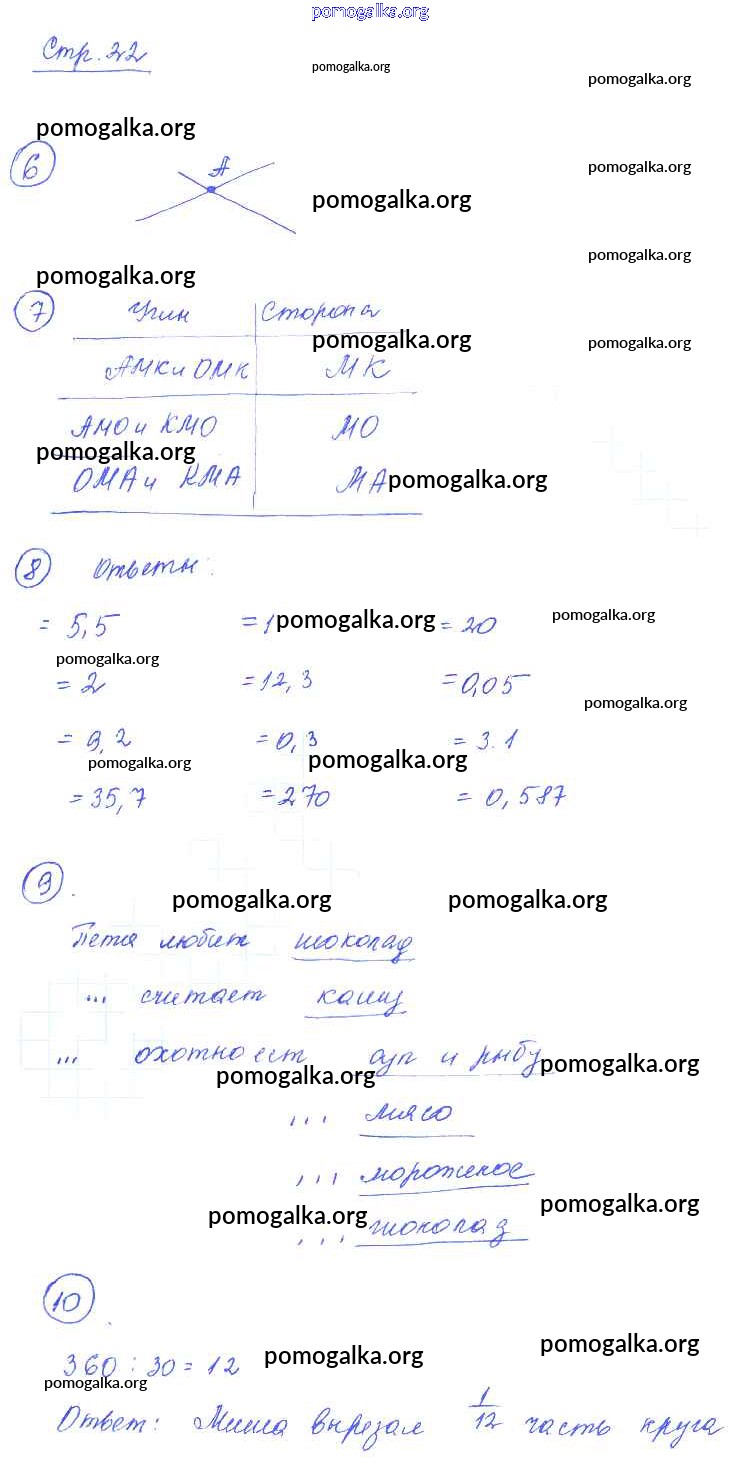 pomogalka.org
Стр. 22
pomogalka.org
pomogalka.org
pomogalka.org
6 А
pomogalka.org
pomogalka.org
pomogalka.org
pomogalka.org
7 Углы Сторона
pomogalka.org pomogalka.org
АМК и ОМК МК
АМО и КМО МО
pomogalka.org
ОМА и КМА МА pomogalka.org
8 Ответы:
= 5,5 =1 pomogalka.org = 20 pomogalka.org
pomogalka.org
= 2 =12,3 =0,05
pomogalka.org
= 9,2 =0,3 = 3.1
pomogalka.org pomogalka.org
=35,7 =270 = 0,587
9.
pomogalka.org pomogalka.org
Петя любит шоколад
... считает кашу
... охотно ест суп и рыбу pomogalka.org
pomogalka.org
... мясо
... мороженое
pomogalka.org pomogalka.org
... шоколад
10.
360 : 30 = 12 pomogalka.org pomogalka.org
pomogalka.org
Ответ: Миша вырезал 1/12 часть круга